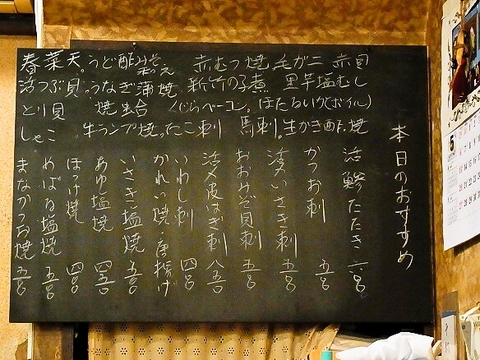 本日のおすすめ
春菜天。うど酢みそ和え 赤むつ焼 毛ガニ 赤貝
活つぶ貝。うなぎ蒲焼 新竹の子煮 黒羊塩むし
とり貝 焼蛤 くじらベーコン。ほたるいか(ボイル)
しゃこ 牛ランプ焼 たこ刺 馬刺。生かき酢、焼
活鯵たたき 六〇〇
かつお刺 五〇〇
活〆いさき刺 五〇〇
おおみぞ貝刺 五〇〇
活〆皮はぎ刺 八五〇
いわし刺 四〇〇
かれい焼・唐揚げ
いさき塩焼 五〇〇
あゆ塩焼 四五〇
ほっけ焼 四〇〇
めばる塩焼 五〇〇
まながつお焼 五〇〇
5